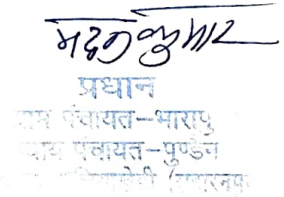 मदन कुमार
प्रधान
ग्राम पंचायत-भारापु
न्याय पंचायत-पुण्डेन